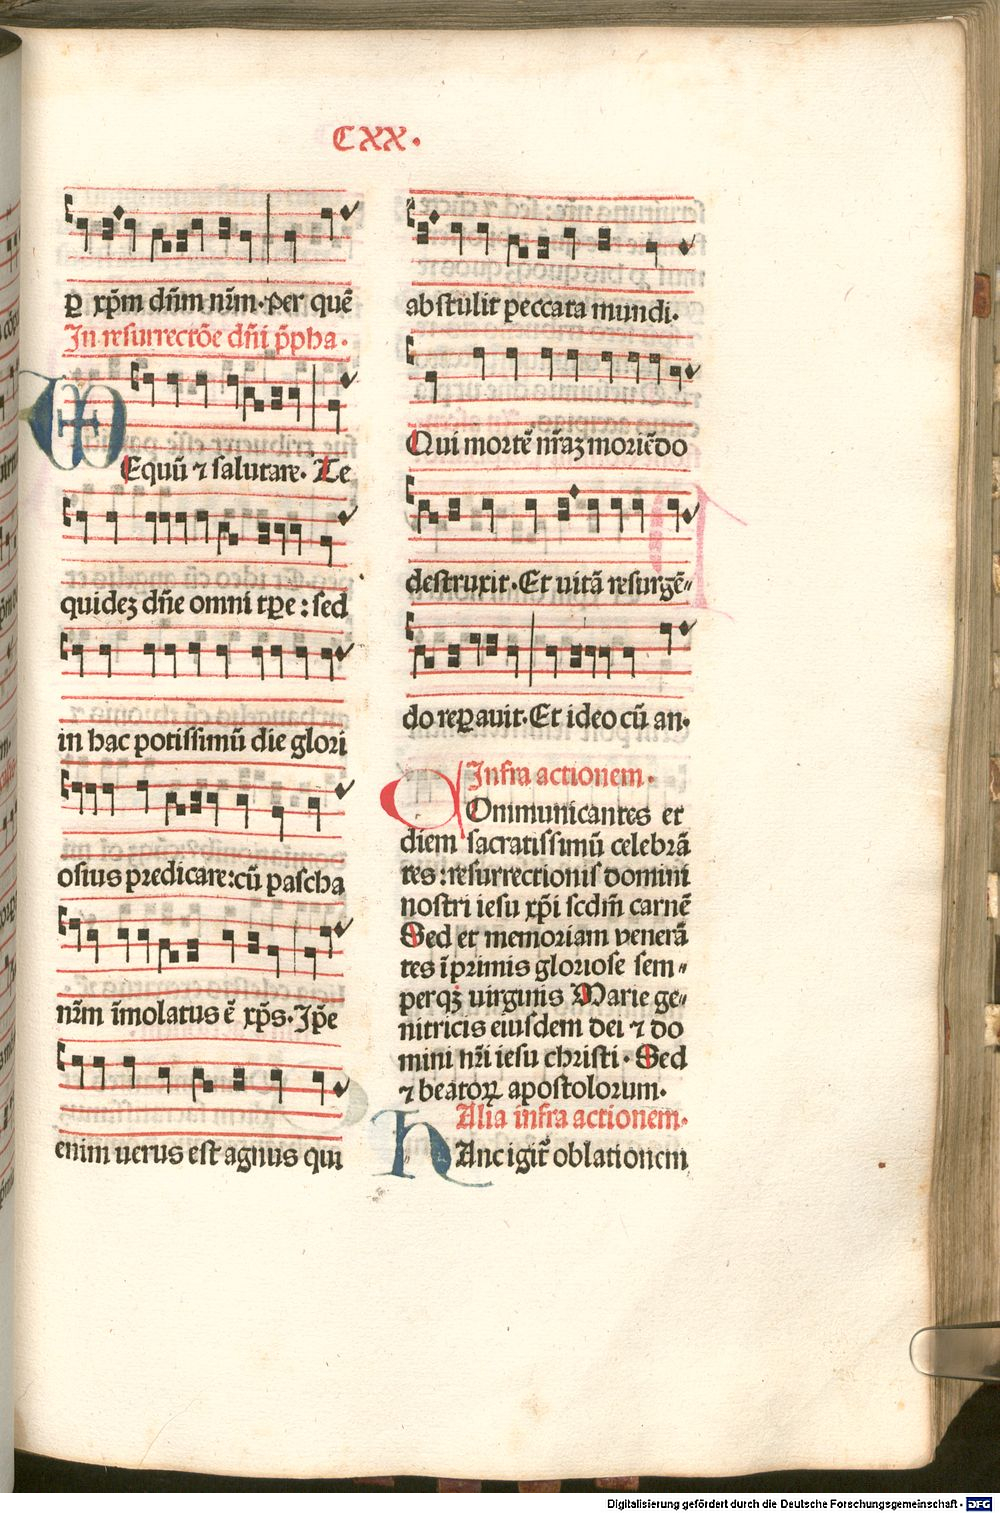 CXX.
ꝑ xp̄m dn̄m nr̄m. per quē
In resurrectōe dn̄i p̄pha.
Equū ⁊ salutare. Te
quideꝫ dn̄e omni tꝑe: sed
in hac potissimū die glori
osius predicare: cū pascha
nr̄m īmolatus ē xp̄s. Ip̄e
enim uerus est agnus qui
abstulit peccata mundi.
Qui mortē nr̄aꝫ moriēdo
destruxit. Et uitā resurgē⸗
do reꝑauit. Et ideo cū an.
Infra actionem.
COmmunicantes et
diem sacratissimū celebrā
tes: resurrectionis domini
nostri iesu xp̄i scdm̄ carnē
Sed et memoriam venerā
tes īprimis gloriose sem⸗
perqꝫ uirginis Marie ge⸗
nitricis eiusdem dei ⁊ do
mini nr̄i iesu christi. Sed
⁊ beatoꝝ apostolorum.
Alia infra actionem.
HAnc igit᷑ oblationem
Digitalisierung gefördert durch die Deutsche Forschungsgemeinschaft - DFG